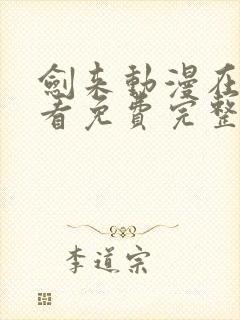 劍来動漫在
看免費完整
李道宗